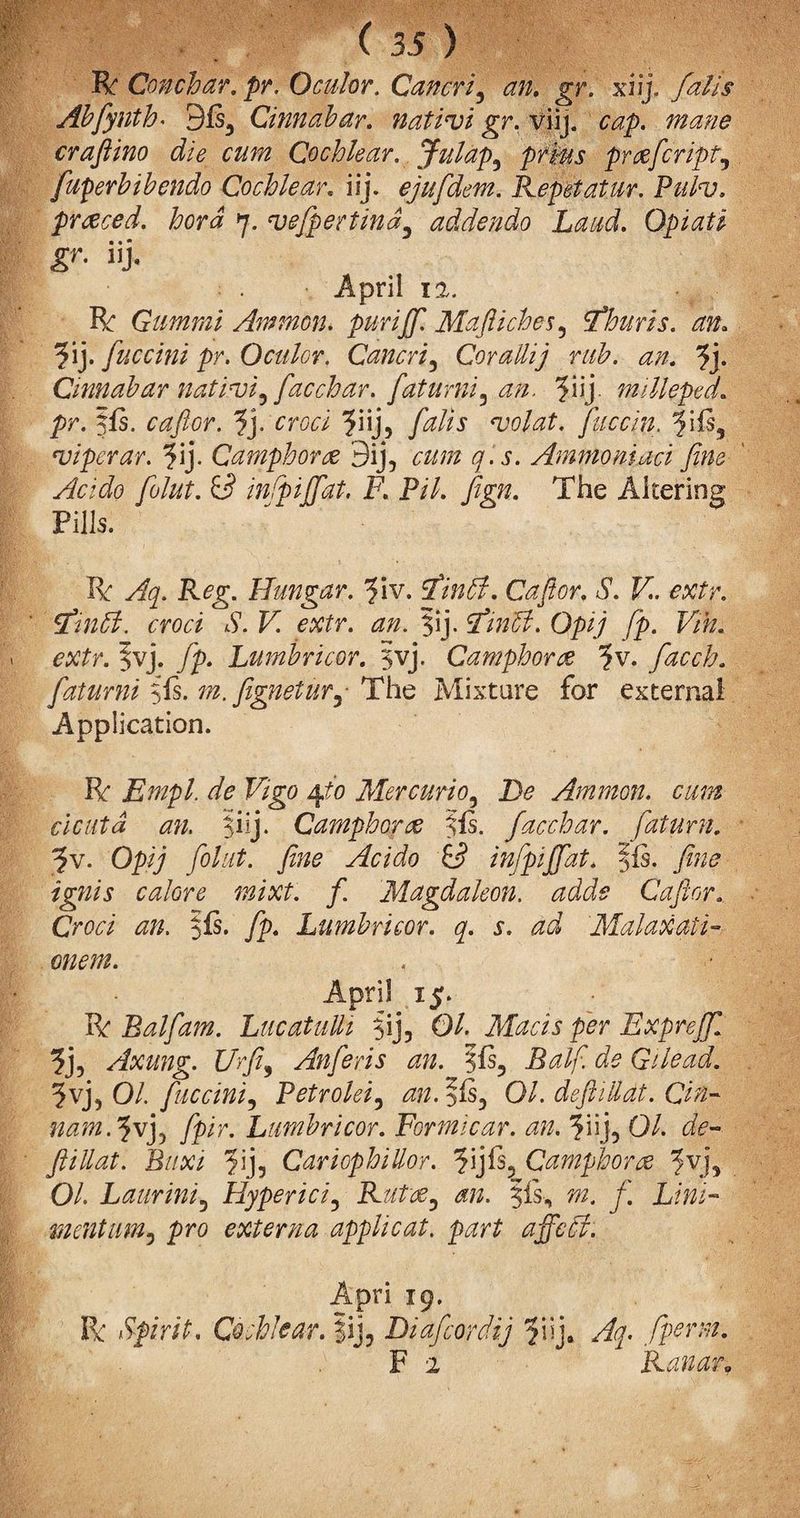 ( 35 )
℞ Conchar. pr. Oculor. Cancri, an. gr. xiij. ſalis
Abſynth. ℈ſs, Cinnabar. nativi gr. viij. cap. mane
craſtino die cum Cochlear. Julap, prius præſcript,
ſuperbibendo Cochlear. iij. ejuſdem. Repetatur. Pulv.
præced. horâ 7. veſpertinâ, addendo Laud. Opiati
gr. iij.
April 12.
℞ Gummi Ammon. puriff. Maſtiches, Thuris. an.
ʒij. ſuccini pr. Oculor. Cancri, Corallij rub. an. ʒj.
Cinnabar nativi, ſacchar. ſaturni, an. ʒiij. milleped.
pr. ℥ſs. caſtor. ʒj. croci ʒiij, ſalis volat. ſuccin. ʒiſs,
viperar. ʒij. Camphoræ ℈ij, cum q. s. Ammoniaci ſine
Acido ſolut. & inſpiſſat. F. Pil. ſign. The Altering
Pills.
℞ Aq. Reg. Hungar. ℥iv. Tinct. Caſtor. S. V. extr.
Tinct. croci S. V. extr. an. ℥ij. Tinct. Opij ſp. Vin.
extr. ℥vj. ſp. Lumbricor. ℥vj. Camphoræ ʒv. ſacch.
ſaturni ℥ſs. m. ſignetur, The Mixture for external
Application.
℞ Empl. de Vigo 4to Mercurio, De Ammon. cum
cicutâ an. ℥iij. Camphoræ ℥ſs. ſacchar. ſaturn.
ʒv. Opij ſolut. ſine Acido & inſpiſſat. ℥ſs. ſine
ignis calore mixt. f. Magdaleon. adde Caſtor.
Croci an. ℥ſs. ſp. Lumbricor. q. s. ad Malaxati-
onem.
April 15.
℞ Balſam. Lucatulli ℥ij, Ol. Macis per Expreſſ.
ʒj, Axung. Urſi, Anſeris an. ℥ſs, Balſ. de Gilead.
ʒvj, Ol. ſuccini, Petrolei, an. ℥ſs, Ol. deſtillat. Cin-
nam. ʒvj, ſpir. Lumbricor. Formicar. an. ʒiij, Ol. de-
ſtillat. Buxi ʒij, Cariophillor. ʒijſs, Camphoræ ʒvj,
Ol. Laurini, Hyperici, Rutæ, an. ℥ſs, m. f. Lini-
mentum, pro externa applicat. part affect.
Apri 19.
℞ Spirit. Cochlear. ℥ij, Diaſcordij ʒiij. Aq. ſperm.
F 2 Ranar.